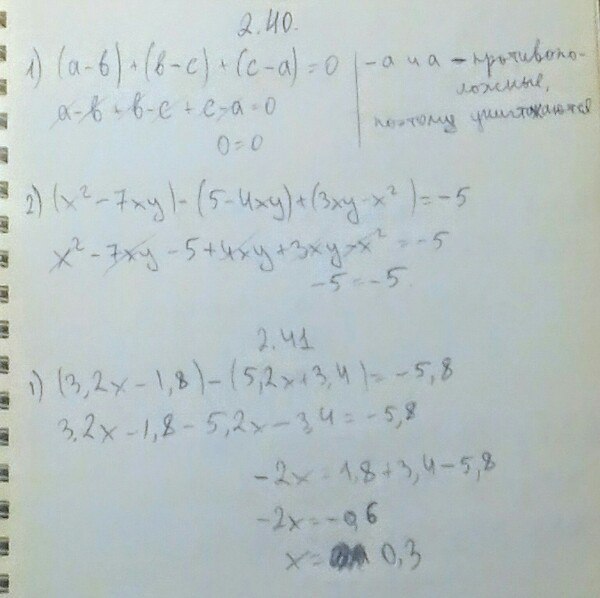 2.40.
1) (а-в)+(в-с)+(с-а)=0
-а и а - противопо-
ложные,
поэтому уничтожаются
а-в+в-с+с-а=0
0=0
2) (x²-7xy)-(5-4xy)+(3xy-x²)=-5
x²-7xy-5+4xy+3xy-x²=-5
-5=-5
2.41
1) (3,2x-1,8)-(5,2x+3,4)=-5,8
3,2x-1,8-5,2x-3,4=-5,8
-2x=1,8+3,4-5,8
-2x=-0,6
x= 0,3